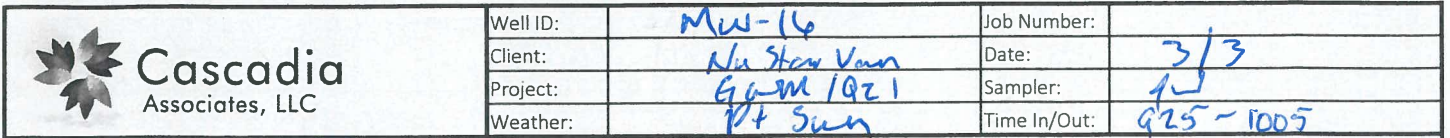 Cascadia
Associates, LLC
Well ID: MW-16 Job Number:
Client: NuStar Van Date: 3/3
Project: GWM /Q21 Sampler:
Weather: Pt Sun Time In/Out: 925-1005